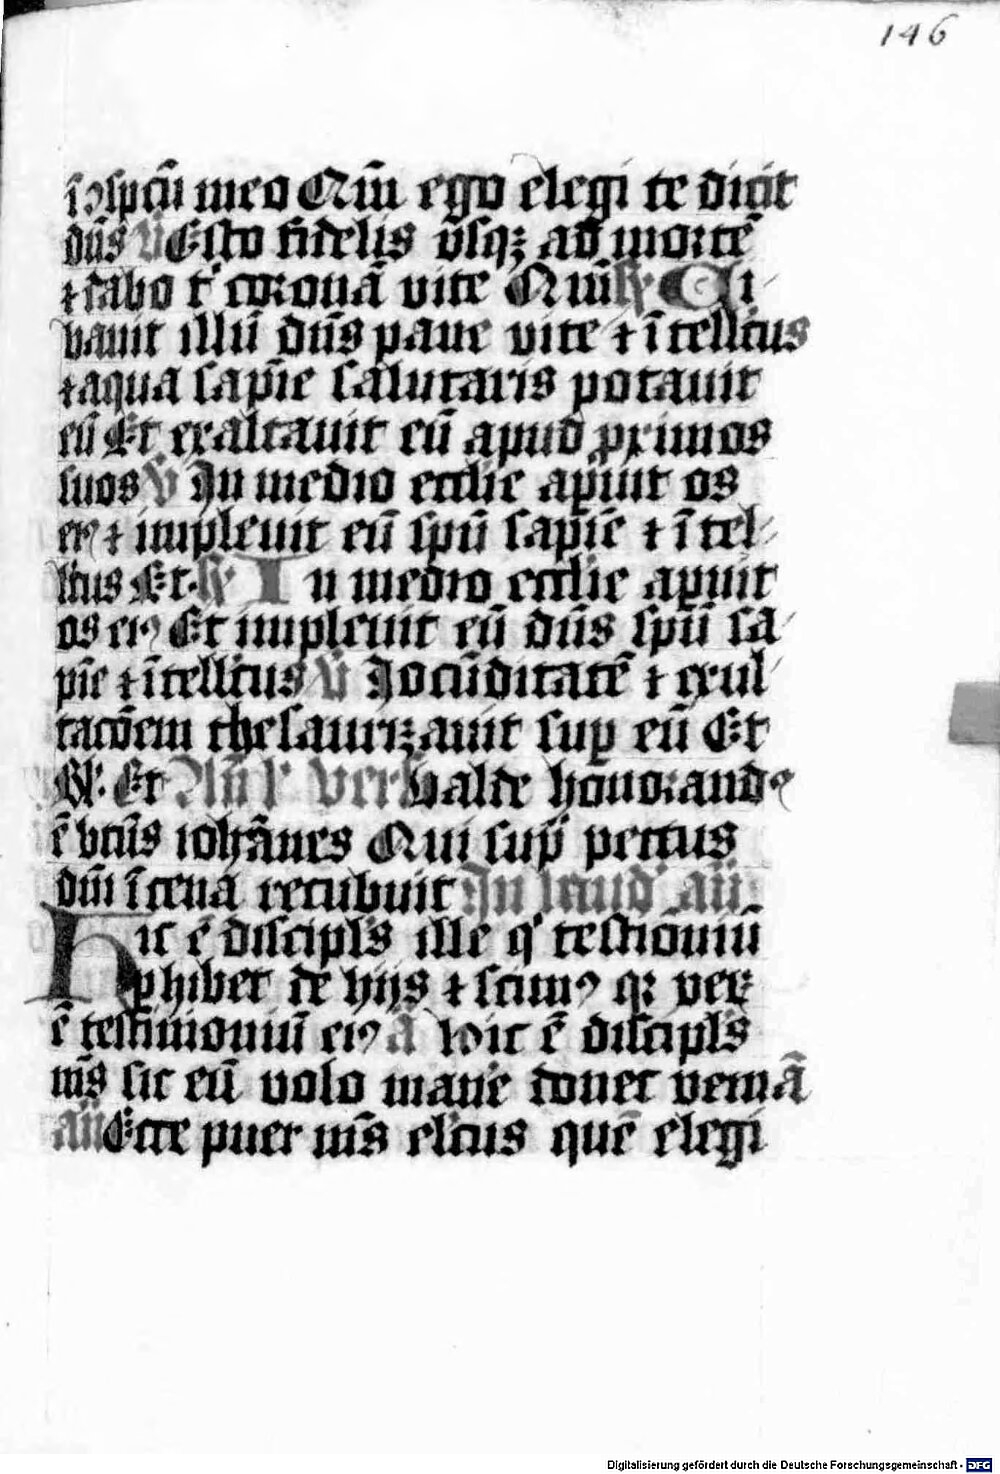 146
ī ɔspcū meo Qm̄ ego elegi te dicit
dn̄s V Esto fidelis vsqꝫ ad mortē
⁊ dabo tͥ coronā vite Qm̄ ℟ Ci-
bauit illū dn̄s pane vite ⁊ ītellcūs
⁊ aqua sapīe salutaris potauit
eū Et exaltauit eū apud ꝓximos
suos V In medio ecclie apuit os
eiꝰ ⁊ impleuit eū spū sapīe ⁊ ītel-
lcūs Et ℟ In medio ecclie apuit
os eiꝰ Et impleuit eū dn̄s spū sa-
pīe ⁊ ītellcūs V Iocūditatē ⁊ exul-
tacōem thesaurizauit suꝑ eū Et
Gl. Et Valde honorandꝰ
ē btūs ioh̄anes Qui sup̄ pectus
dn̄i ī cena recubuit In laud an̄
Hic ē discipl̄s ille qͥ testīoniū
ꝑhibet de hijs ⁊ scimꝰ qꝫ veꝝ
ē testimoniū eiꝰ a Hic ē discipl̄s
m̄s sic eū volo mane donec veniā
an̄ Ecce puer m̄s elcūs quē elegi
Digitalisierung gefördert durch die Deutsche Forschungsgemeinschaft - DFG